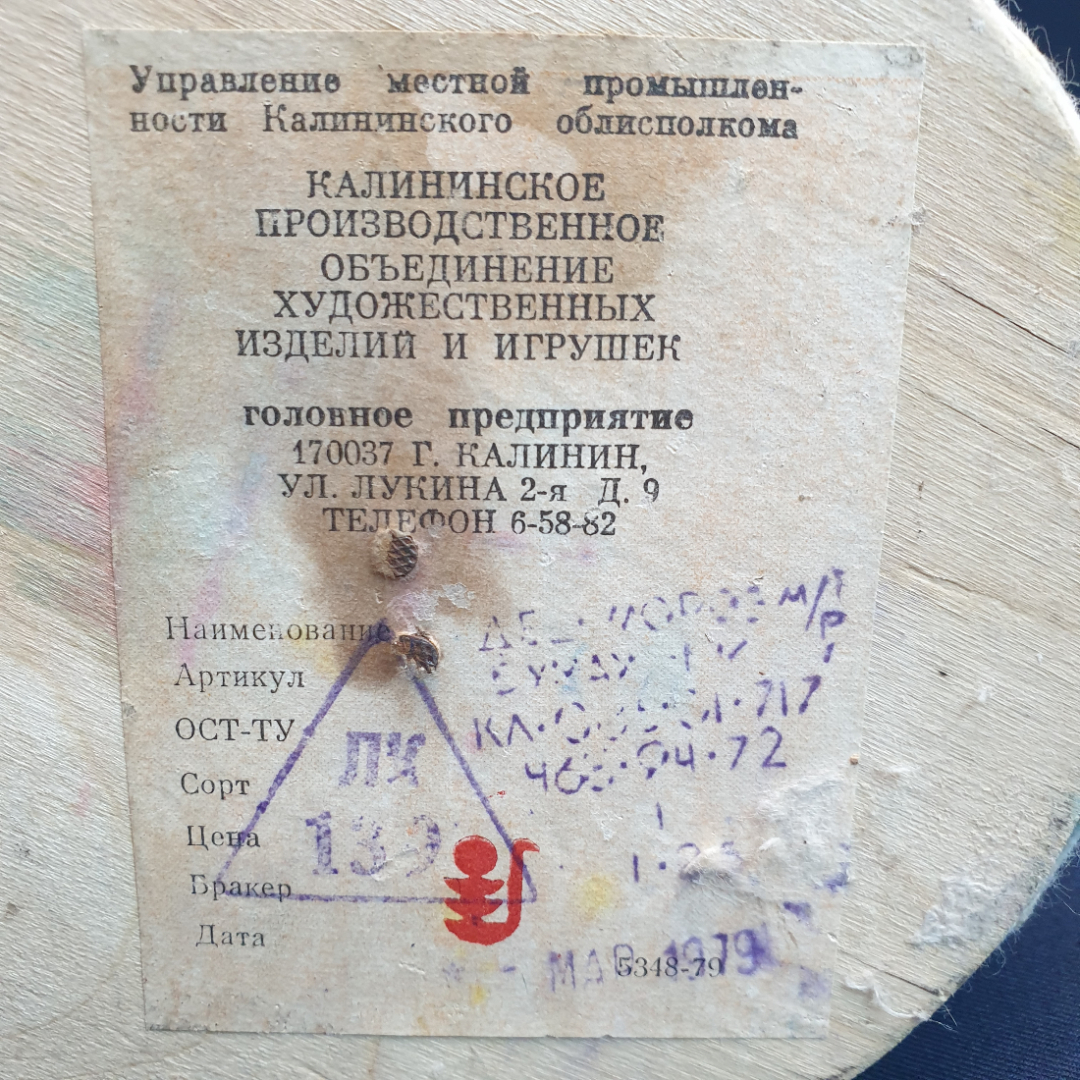 Управление местной промышлен-
ности Калининского облисполкома
КАЛИНИНСКОЕ
ПРОИЗВОДСТВЕННОЕ
ОБЪЕДИНЕНИЕ
ХУДОЖЕСТВЕННЫХ
ИЗДЕЛИЙ И ИГРУШЕК
головное предприятие
170037 Г. КАЛИНИН,
УЛ. ЛУКИНА 2-я Д. 9
ТЕЛЕФОН 6-58-82
Наименование
Артикул
ОСТ-ТУ
ПК
Сорт
Цена
139
Бракер
Дата
5348-79